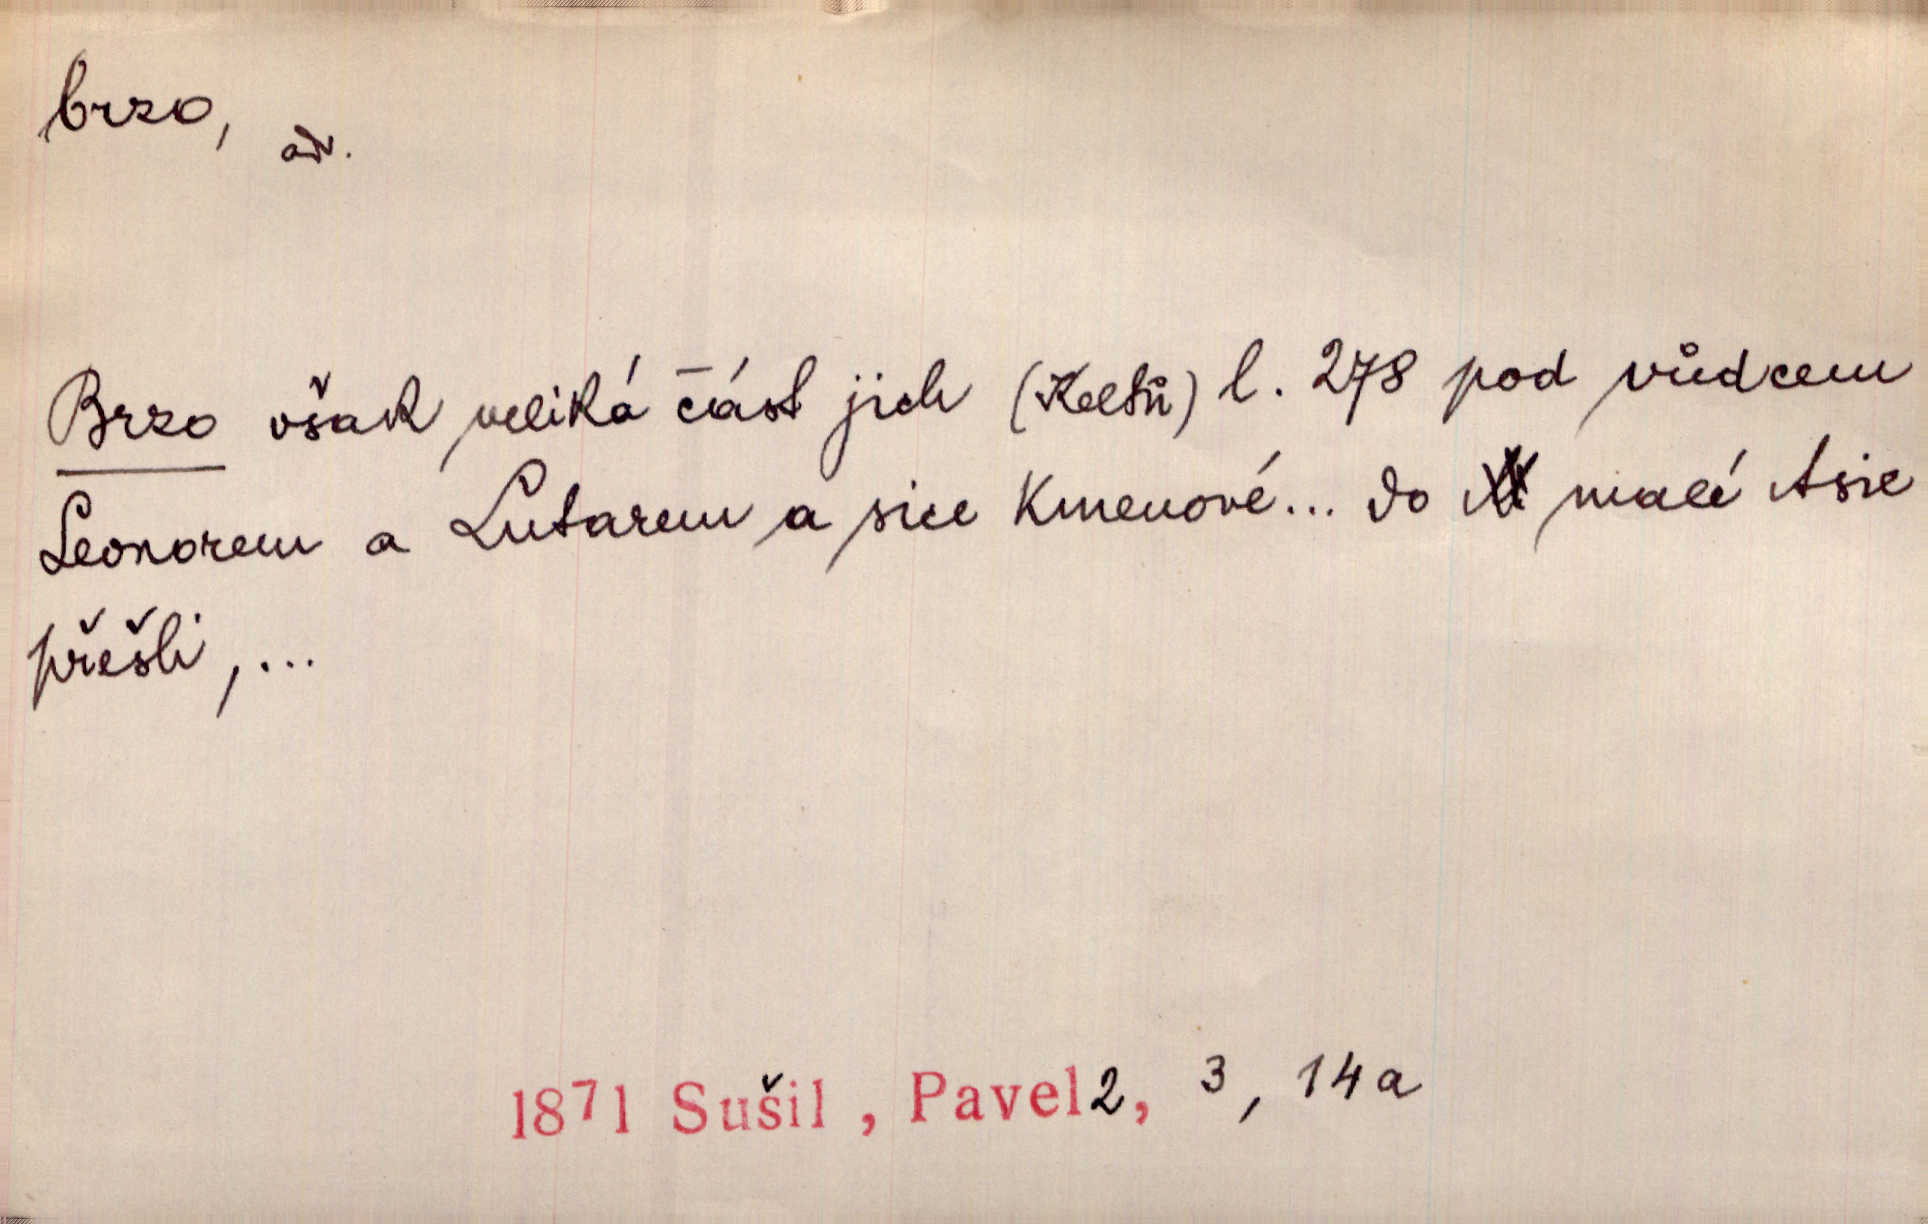 brzo, adv.
Brzo však veliká část jich (Keltů) l. 278 pod vůdcem
Leonorem a Lutarem a sice Kmenové... do malé Asie
přešli, ...
1871 Sušil, Pavel 2, 3, 14a